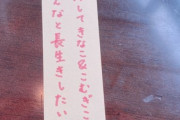 してきなこ&こむぎこ
なと長生きしたい